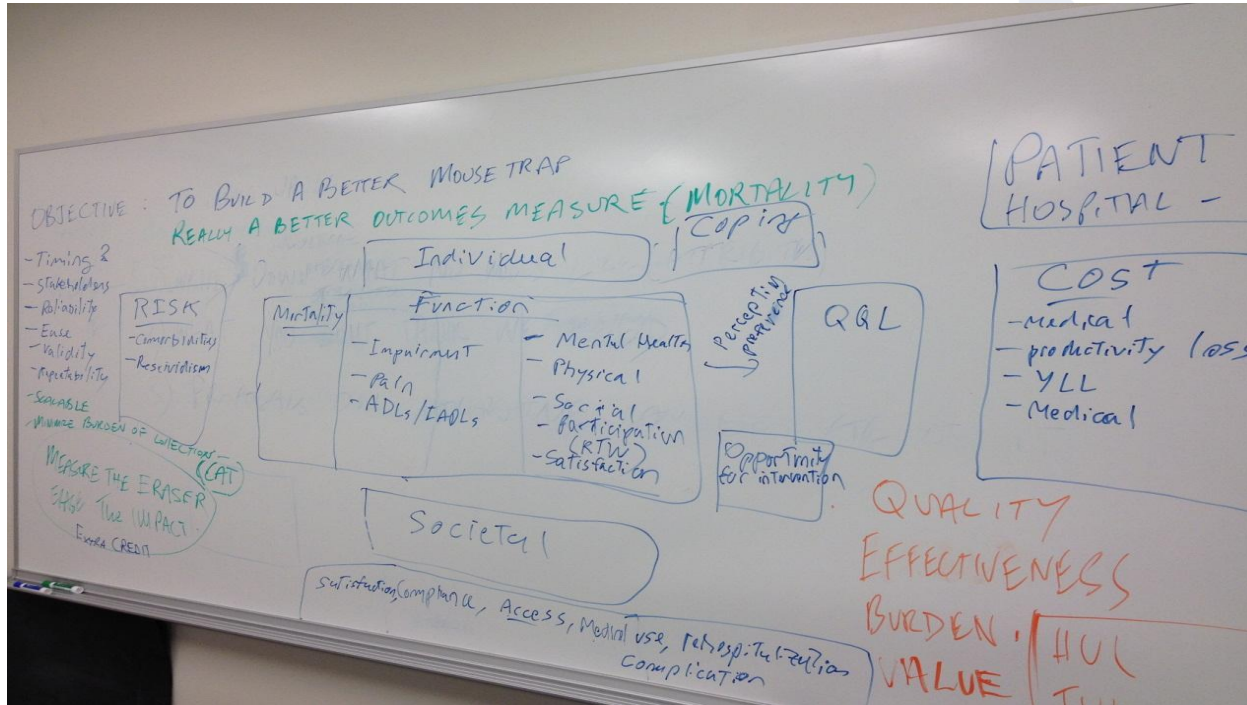 OBJECTIVE : TO BUILD A BETTER MOUSE TRAP
REALLY A BETTER OUTCOMES MEASURE (MORTALITY)
- Timing
- Stakeholders
- Reliability
- Ease
- Validity
- Repeatability
- SCALABLE
- MINIMIZE BURDEN OF
(CAT)
MEASURE THE ERASER
THE IMPACT
EXTRA CREDIT
RISK
- Comorbidities
- Rescividism
Individual
Coping
Mortality
Function
- Impairment
- Pain
- ADLs/IADLs
- Mental Health
- Physical
- Social
- Participation
(RTW)
- Satisfaction
Perception
preference
QQL
Opportunity
for intervention
Societal
Satisfaction, Compliance, Access, Medical use, rehospitalization
Complication
PATIENT
HOSPITAL -
COST
- Medical
- productivity loss
- YLL
- Medical
QUALITY
EFFECTIVENESS
BURDEN .
VALUE